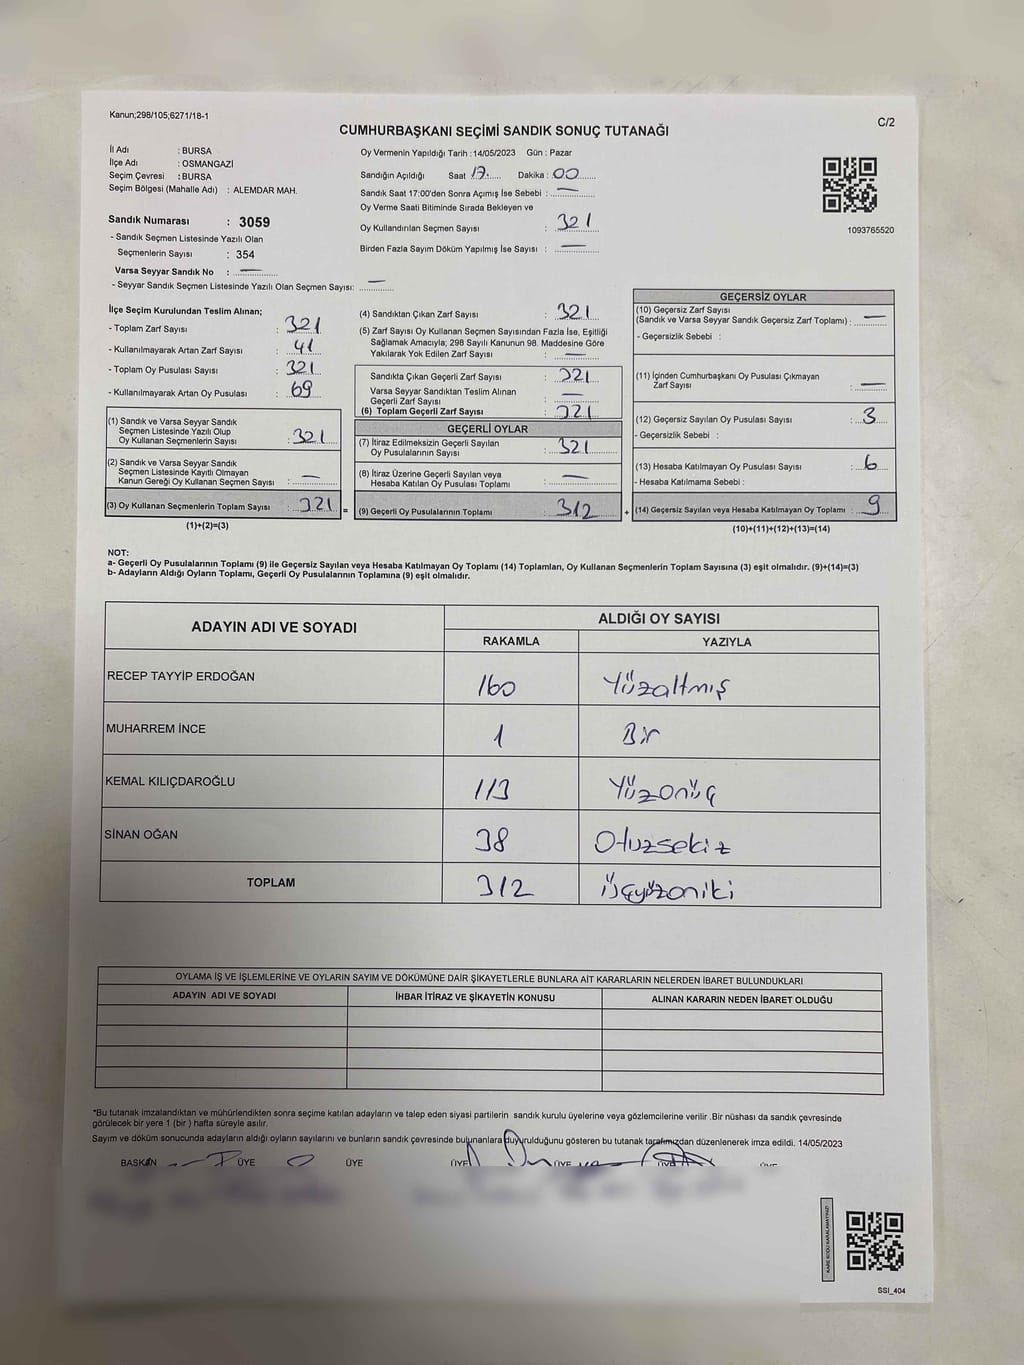 Kanun;298/105;6271/18-1
C/2
CUMHURBAŞKANI SEÇİMİ SANDIK SONUÇ TUTANAĞI
İl Adı : BURSA
İlçe Adı : OSMANGAZİ
Seçim Çevresi : BURSA
Seçim Bölgesi (Mahalle Adı) : ALEMDAR MAH.
Sandık Numarası : 3059
- Sandık Seçmen Listesinde Yazılı Olan
Seçmenlerin Sayısı : 354
Varsa Seyyar Sandık No : —
- Seyyar Sandık Seçmen Listesinde Yazılı Olan Seçmen Sayısı: —
Oy Vermenin Yapıldığı Tarih : 14/05/2023 Gün : Pazar
Sandığın Açıldığı Saat 17 Dakika : 00
Sandık Saat 17:00'den Sonra Açımış İse Sebebi : —
Oy Verme Saati Bitiminde Sırada Bekleyen ve
Oy Kullandırılan Seçmen Sayısı : 321
Birden Fazla Sayım Döküm Yapılmış İse Sayısı : —
1093765520
İlçe Seçim Kurulundan Teslim Alınan;
- Toplam Zarf Sayısı : 321
- Kullanılmayarak Artan Zarf Sayısı : 41
- Toplam Oy Pusulası Sayısı : 321
- Kullanılmayarak Artan Oy Pusulası : 69
(1) Sandık ve Varsa Seyyar Sandık
Seçmen Listesinde Yazılı Olup
Oy Kullanan Seçmenlerin Sayısı : 321
(2) Sandık ve Varsa Seyyar Sandık
Seçmen Listesinde Kayıtlı Olmayan
Kanun Gereği Oy Kullanan Seçmen Sayısı : —
(3) Oy Kullanan Seçmenlerin Toplam Sayısı : 321 =
(1)+(2)=(3)
(4) Sandıktan Çıkan Zarf Sayısı : 321
(5) Zarf Sayısı Oy Kullanan Seçmen Sayısından Fazla İse, Eşitliği
Sağlamak Amacıyla; 298 Sayılı Kanunun 98. Maddesine Göre
Yakılarak Yok Edilen Zarf Sayısı : —
Sandıkta Çıkan Geçerli Zarf Sayısı : 321
Varsa Seyyar Sandıktan Teslim Alınan
Geçerli Zarf Sayısı : —
(6) Toplam Geçerli Zarf Sayısı : 321
GEÇERLİ OYLAR
(7) İtiraz Edilmeksizin Geçerli Sayılan
Oy Pusulalarının Sayısı : 321
(8) İtiraz Üzerine Geçerli Sayılan veya
Hesaba Katılan Oy Pusulası Toplamı : —
(9) Geçerli Oy Pusulalarının Toplamı : 312 +
GEÇERSİZ OYLAR
(10) Geçersiz Zarf Sayısı
(Sandık ve Varsa Seyyar Sandık Geçersiz Zarf Toplamı) : —
- Geçersizlik Sebebi :
(11) İçinden Cumhurbaşkanı Oy Pusulası Çıkmayan
Zarf Sayısı : —
(12) Geçersiz Sayılan Oy Pusulası Sayısı : 3
- Geçersizlik Sebebi :
(13) Hesaba Katılmayan Oy Pusulası Sayısı : 6
- Hesaba Katılmama Sebebi :
(14) Geçersiz Sayılan veya Hesaba Katılmayan Oy Toplamı : 9
(10)+(11)+(12)+(13)=(14)
NOT:
a- Geçerli Oy Pusulalarının Toplamı (9) ile Geçersiz Sayılan veya Hesaba Katılmayan Oy Toplamı (14) Toplamları, Oy Kullanan Seçmenlerin Toplam Sayısına (3) eşit olmalıdır. (9)+(14)=(3)
b- Adayların Aldığı Oyların Toplamı, Geçerli Oy Pusulalarının Toplamına (9) eşit olmalıdır.
ADAYIN ADI VE SOYADI
ALDIĞI OY SAYISI
RAKAMLA YAZIYLA
RECEP TAYYİP ERDOĞAN 160 Yüzaltmış
MUHARREM İNCE 1 Bir
KEMAL KILIÇDAROĞLU 113 Yüzonüç
SİNAN OĞAN 38 Otuzsekiz
TOPLAM 312 üçyüzoniki
OYLAMA İŞ VE İŞLEMLERİNE VE OYLARIN SAYIM VE DÖKÜMÜNE DAİR ŞİKAYETLERLE BUNLARA AİT KARARLARIN NELERDEN İBARET BULUNDUKLARI
ADAYIN ADI VE SOYADI İHBAR İTİRAZ VE ŞİKAYETİN KONUSU ALINAN KARARIN NEDEN İBARET OLDUĞU
*Bu tutanak imzalandıktan ve mühürlendikten sonra seçime katılan adayların ve talep eden siyasi partilerin sandık kurulu üyelerine veya gözlemcilerine verilir .Bir nüshası da sandık çevresinde
görülecek bir yere 1 (bir ) hafta süreyle asılır.
Sayım ve döküm sonucunda adayların aldığı oyların sayılarını ve bunların sandık çevresinde bulunanlara duyurulduğunu gösteren bu tutanak tarafımızdan düzenlenerek imza edildi. 14/05/2023
BAŞKAN ÜYE ÜYE ÜYE ÜYE ÜYE ÜYE
KARE KODU KARALAMAYINIZ!
SSI_404